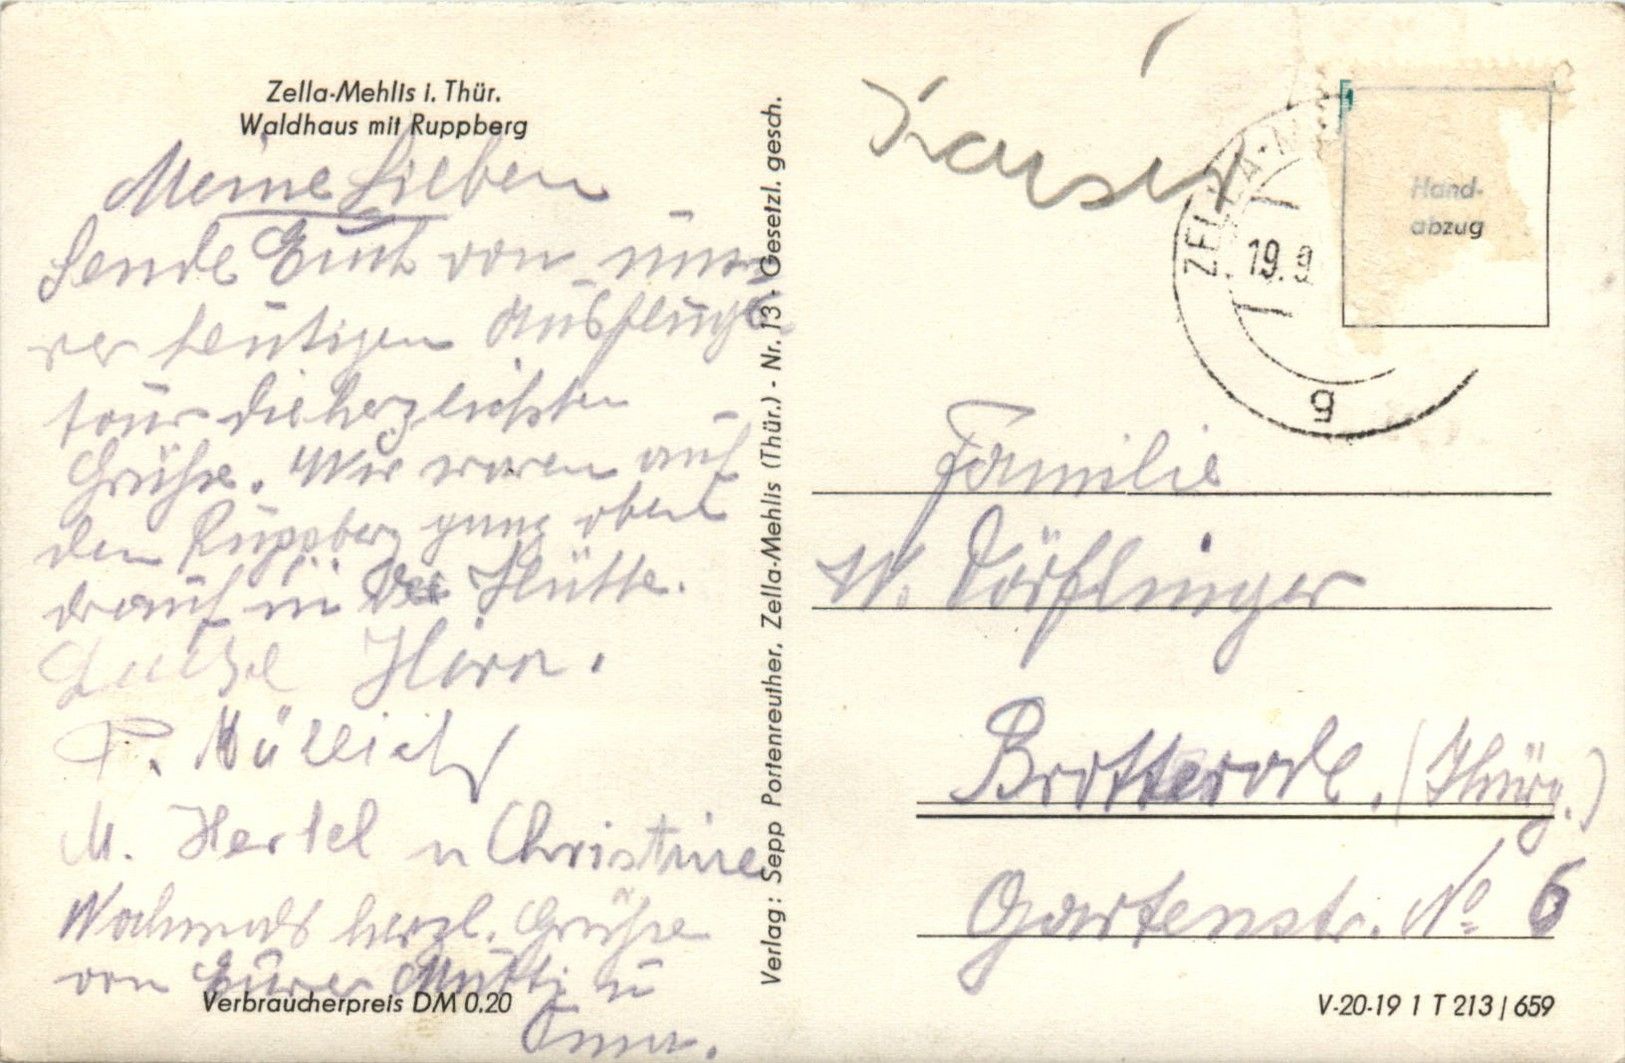 Zella-Mehlis i. Thür.
Waldhaus mit Ruppberg
Meine Lieben
Sende Euch von unse
rer heutigen Ausflugs
tour die herzlichsten
Grüße. Wir waren auf
dem Ruppberg ganz oben
drauf in der Hütte.
Luise Hirn.
P.
M. Hertel u Christine
Nochmals herzl. Grüße
von Eurer Mutti u
Oma.
Verbraucherpreis DM 0.20
Verlag: Sepp Portenreuther, Zella-Mehlis (Thür.) - Nr. 13 - Gesetzl. gesch.
Kaiser
ZELLA-M
19.9
g
Hand-
abzug
Familie
W. Dörflinger
Brotterode. (Thürg.)
Gartenstr. No 6
V-20-19 1 T 213/659